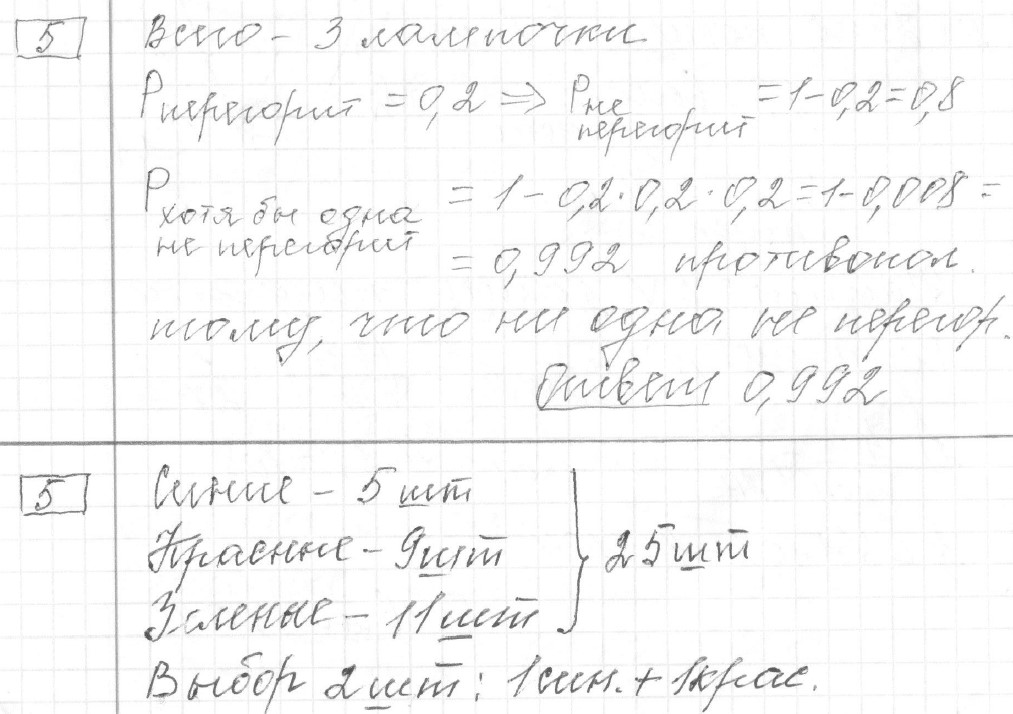 5 Всего - 3 лампочки
Pперегорит = 0,2 => Pне перегорит = 1-0,2=0,8
Pхотя бы одна не перегорит = 1 - 0,2·0,2·0,2=1-0,008 =
= 0,992 противопол.
тому, что ни одна не перегор.
Ответ 0,992
5 Синие - 5 шт
Красные - 9 шт
Зеленые - 11 шт } 25 шт
Выбор 2 шт: 1 син. + 1 крас.